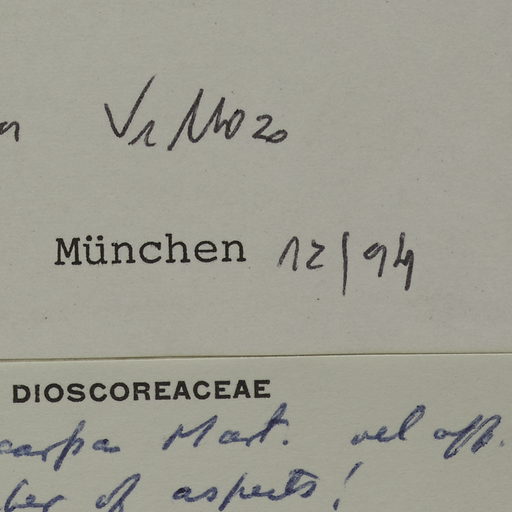 Vellozo
München 12/94
DIOSCOREACEAE
carpa Mart. vel aff.
ber of aspects!